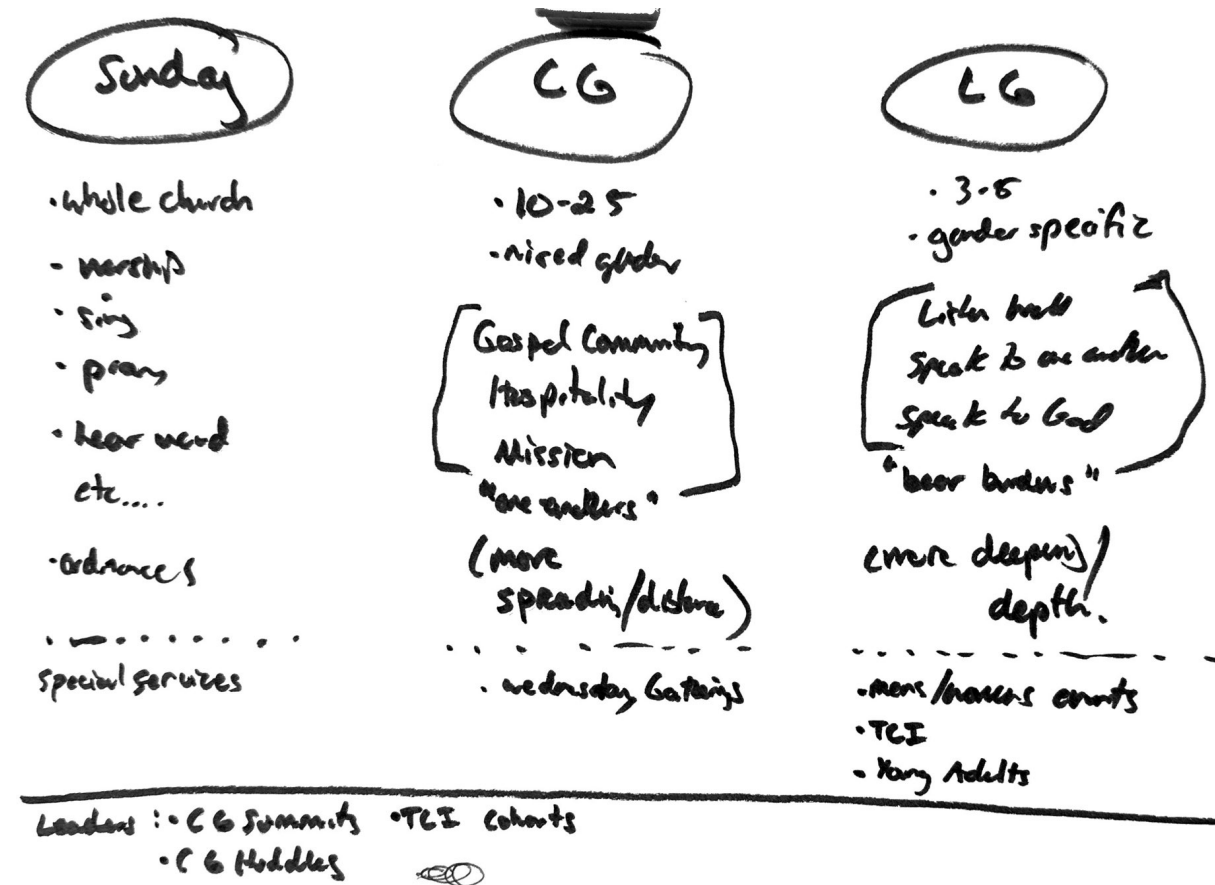 Sunday
· whole church
- worship
· sing
· pray
· hear word
etc....
· ordinances
special services
CG
· 10-25
· mixed gender
Gospel Community
Hospitality
Mission
"one anothers"
(more
spreading/distance)
· wednesday Gatherings
LG
· gender specific
Listen
Speak to one another
Speak to God
"bear burdens"
(more deepen)/
depth.
· mens/womens events
· TCI
· Young Adults
Leaders : · CG Summits · TCI Cohorts
· CG Huddles